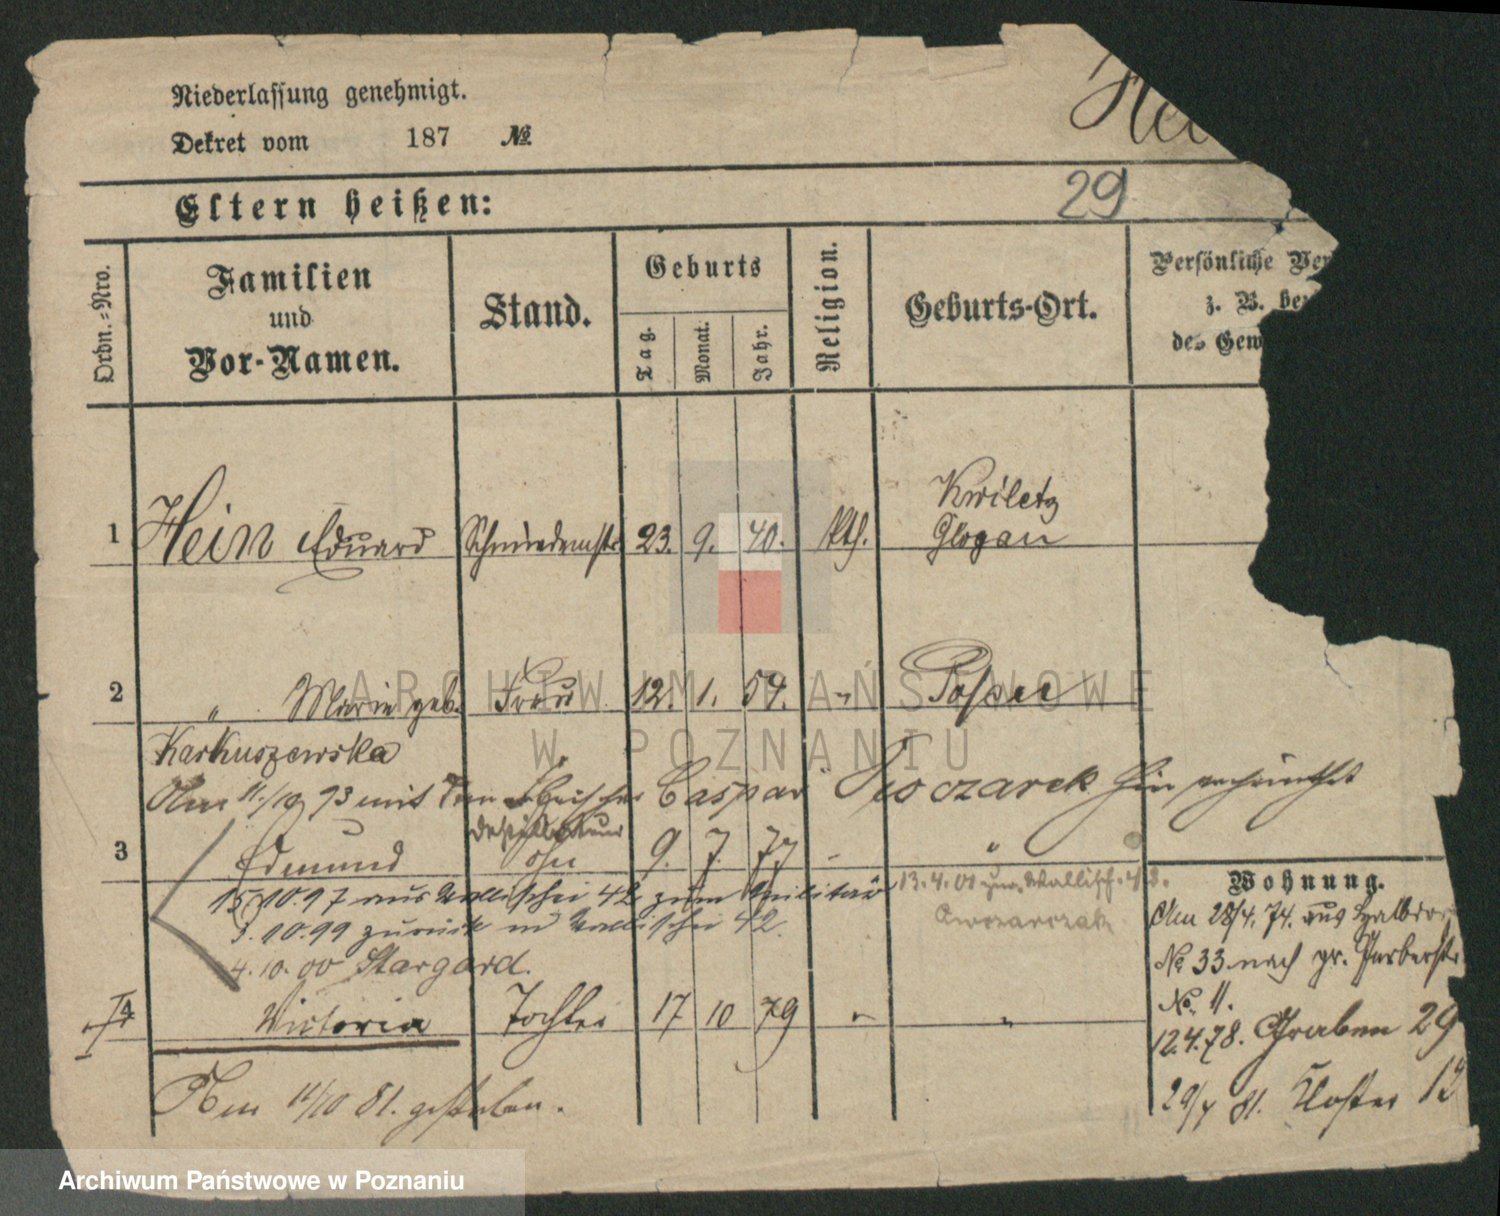 Niederlassung genehmigt.
Dekret vom 187 №
Hei
Eltern heißen:
29
Ordn.-Nro.
Familien
und
Vor-Namen.
Stand.
Geburts
Tag.
Monat.
Jahr.
Religion.
Geburts-Ort.
Persönliche Ver
z. B. be
des Gew
1 Hein Eduard Schmiedemstr 23. 9. 40. kth. Kwiletz
Glogau
2 " Marie geb. Frau 12. 1. 59. " Posen
Karkuszewska
Am 11./10 93 mit dem Caspar Owczarek hier
3 Edmund Sohn 9. 7. 77 "
15/10.97 aus Wallischei 42 zum Militär
3.10.99 zurück n Wallischei 42.
4.10.00 Stargard.
13.4.01 zur Wallisch. 42.
Owczarczak
4 Victoria Tochter 17 10 79 " "
Am 11/10 81. gestorben.
Wohnung.
Am 28/4. 74. aus Halbdorf
№ 33 nach gr. Gerberstr
№ 11.
12.4.78. Graben 29
29/4 81. Kloster 12
ARCHIWUM PAŃSTWOWE
W POZNANIU
Archiwum Państwowe w Poznaniu